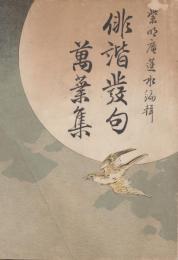 紫明庵蓮水編輯
俳諧發句
萬葉集